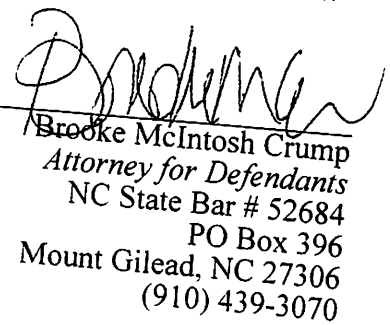 Brooke McIntosh Crump
Attorney for Defendants
NC State Bar # 52684
PO Box 396
Mount Gilead, NC 27306
(910) 439-3070